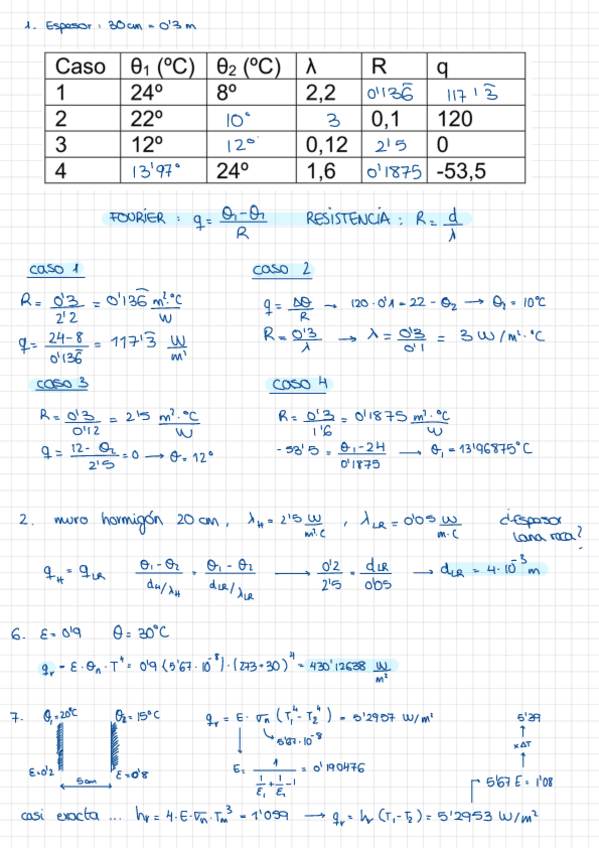 1. Espesor: 30cm = 0'3 m
Caso θ₁ (ºC) θ₂ (ºC) λ R q
1 24º 8º 2,2 0'136̅ 117'3̅
2 22º 10º 3 0,1 120
3 12º 12º 0,12 2'5 0
4 13'97º 24º 1,6 0'1875 -53,5
FOURIER: q = (θ₁-θ₂)/R RESISTENCIA: R = d/λ
caso 1
R = 0'3/2'2 = 0'136̅ m²·ºC/W
q = (24-8)/0'136̅ = 117'3̅ W/m²
caso 2
q = Δθ/R → 120·0'1 = 22-θ₂ → θ₁ = 10ºC
R = 0'3/λ → λ = 0'3/0'1 = 3 W/m²·ºC
caso 3
R = 0'3/0'12 = 2'5 m²·ºC/W
q = (12-θ₂)/2'5 = 0 → θ = 12º
caso 4
R = 0'3/1'6 = 0'1875 m²·ºC/W
-53'5 = (θ₁-24)/0'1875 → θ₁ = 13'96875ºC
2. muro hormigón 20 cm, λH = 2'5 W/m²·C, λLR = 0'05 W/m·C ¿Espesor lana roca?
qH = qLR (θ₁-θ₂)/(dH/λH) = (θ₁-θ₂)/(dLR/λLR) → 0'2/2'5 = dLR/0'05 → dLR = 4·10⁻³ m
6. ε = 0'9 θ = 30ºC
qr = ε·σn·T⁴ = 0'9 (5'67·10⁻⁸)·(273+30)⁴ = 430'12638 W/m²
7. θ₁ = 20ºC θ₂ = 15ºC
ε = 0'2 ε = 0'8
5cm
qr = E·σn (T₁⁴-T₂⁴) = 5'2957 W/m²
5'67·10⁻⁸
E = 1/(1/ε₁ + 1/ε₁ - 1) = 0'190476
5'29
×ΔT
5'67 E = 1'08
casi exacta ... hr = 4·E·σn·Tm³ = 1'059 → qr = h (T₁-T₂) = 5'2953 W/m²